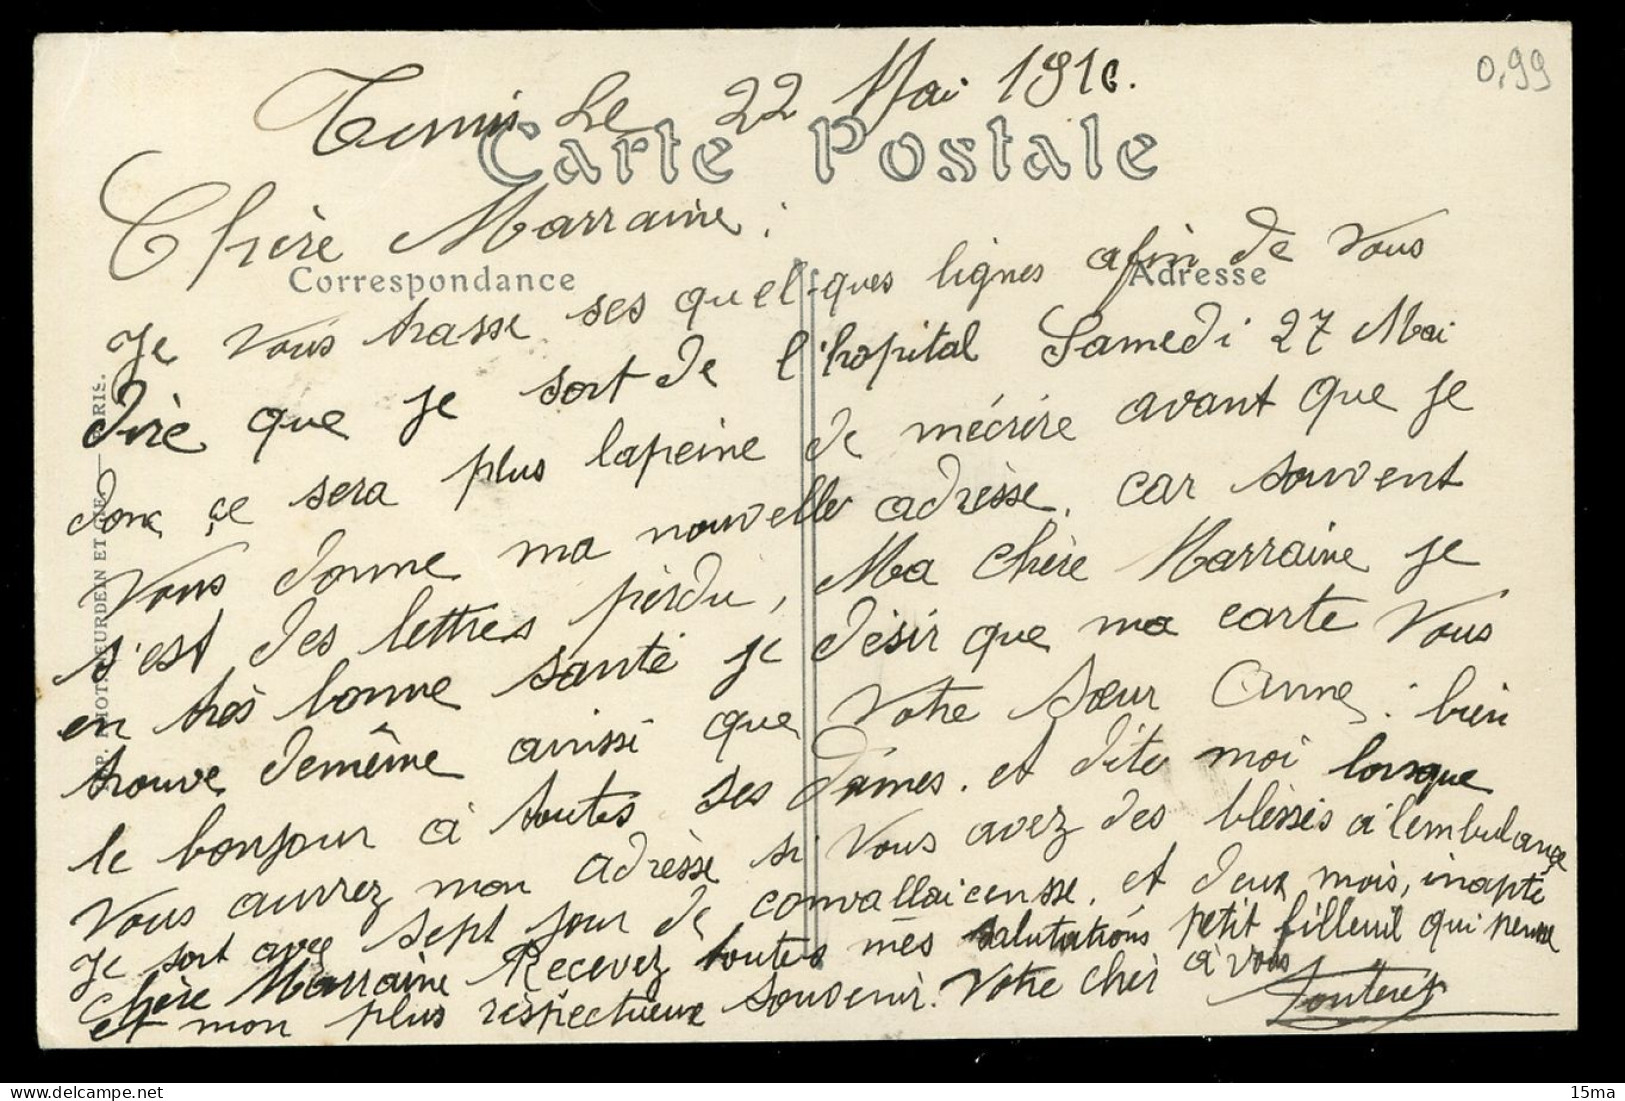 Tunis Le 22 Mai 1916.
0,99
Carte Postale
Chère Marraine :
Correspondance
Adresse
Je vous trasse ses quelques lignes afin de vous
dire que je sort de l'hopital Samedi 27 Mai
donc çe sera plus lapeine de mécrire avant que je
vous donne ma nouvelle adrèsse. car souvent
s'est des lettres perdu, Ma chère Marraine je
en très bonne santé je désir que ma carte vous
trouve demême ainssi que votre sœur Anne : bien
le bonjour à toutes ses Dames. et dite moi lorsque
vous aurrez mon adrèsse si vous avez des bléssés a l'embulançe
je sort avec sept jour de convallaicensse. et deux mois, inapte
chère Marraine Recevez toutes mes salutations petit filleuil qui pensse
et mon plus rèspectueux souvenir. Votre cher à vous
IMP. PHOT. NEURDEIN ET CIE. — PARIS.
15ma
delcampe.net